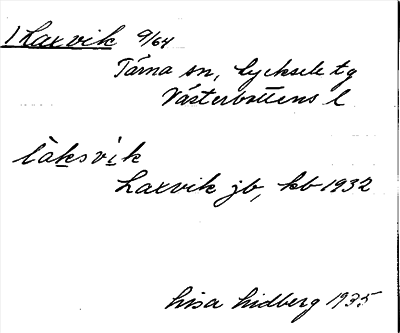 1 Laxvik 9/64
Tärna sn, Lycksele tg
Västerbottens l
làksvik
Laxvik jb, kb 1932
Lisa Lidberg 1935